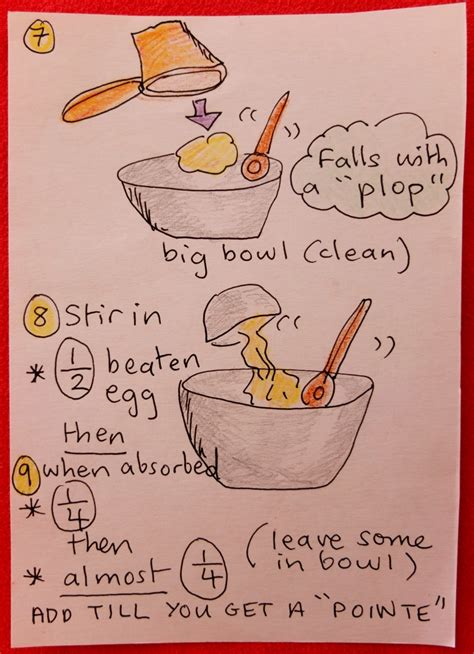 7
Falls with
a "plop"
big bowl (clean)
8 Stir in
* 1/2 beaten
egg
then
9 when absorbed
* 1/4
then
* almost 1/4 (leave some
in bowl)
ADD TILL YOU GET A "POINTE"